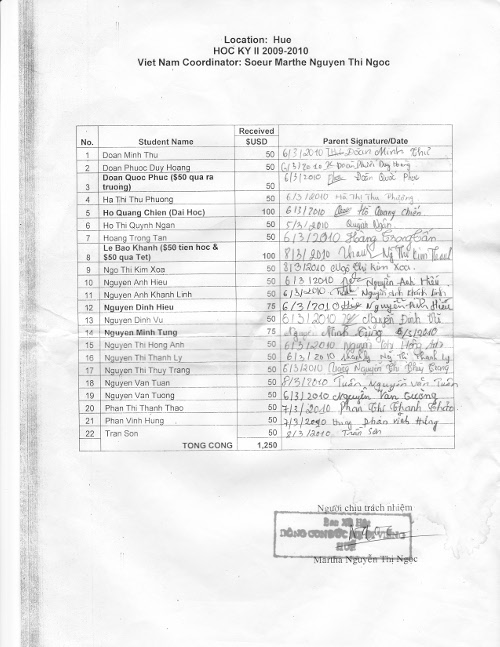 Location: Hue
HOC KY II 2009-2010
Viet Nam Coordinator: Soeur Marthe Nguyen Thi Ngoc
No. Student Name Received $USD Parent Signature/Date
1 Doan Minh Thu 50 6/3/2010 Đoàn Minh Thư
2 Doan Phuoc Duy Hoang 50 6/3/2010 Đoàn Phước Duy Hoàng
3 Doan Quoc Phuc ($50 qua ra truong) 50 6/3/2010 Đoàn Quốc Phúc
4 Ha Thi Thu Phuong 50 6/3/2010 Hà Thị Thu Phương
5 Ho Quang Chien (Dai Hoc) 100 6/3/2010 Hồ Quang Chiến
6 Ho Thi Quynh Ngan 50 5/3/2010 Quỳnh Ngân
7 Hoang Trong Tan 50 6/3/2010 Hoàng Trọng Tấn
8 Le Bao Khanh ($50 tien hoc & $50 qua Tet) 100 8/3/2010 Thị Kim Thanh
9 Ngo Thi Kim Xoa 50 8/3/2010 Ngô Thị Kim Xoa.
10 Nguyen Anh Hieu 50 6/3/2010 Nguyễn Anh Hiếu
11 Nguyen Anh Khanh Linh 50 6/3/2010 Nguyễn Anh Khánh Linh
12 Nguyen Dinh Hieu 75 6/3/2010 Nguyễn Đình Hiếu
13 Nguyen Dinh Vu 50 6/3/2010 Nguyễn Đình Vũ
14 Nguyen Minh Tung 75 Nguyễn Minh Tùng 6/3/2010
15 Nguyen Thi Hong Anh 50 6/3/2010 Nguyễn Thị Hồng Anh
16 Nguyen Thi Thanh Ly 50 6/3/2010 Thị Thanh Ly
17 Nguyen Thi Thuy Trang 50 6/3/2010 Nguyễn Thị Thùy Trang
18 Nguyen Van Tuan 50 8/3/2010 Tuấn Nguyễn Văn Tuấn
19 Nguyen Van Tuong 50 6/3/2010 Nguyễn Văn Tường
20 Phan Thi Thanh Thao 50 7/3/2010 Phan Thị Thanh Thảo
21 Phan Vinh Hung 50 7/3/2010 Hưng Phan Vĩnh Hưng
22 Tran Son 50 2/3/2010 Trần Sơn
TONG CONG 1,250
Người chịu trách nhiệm
Ban Xã Hội
HUẾ
Martha Nguyễn Thị Ngọc